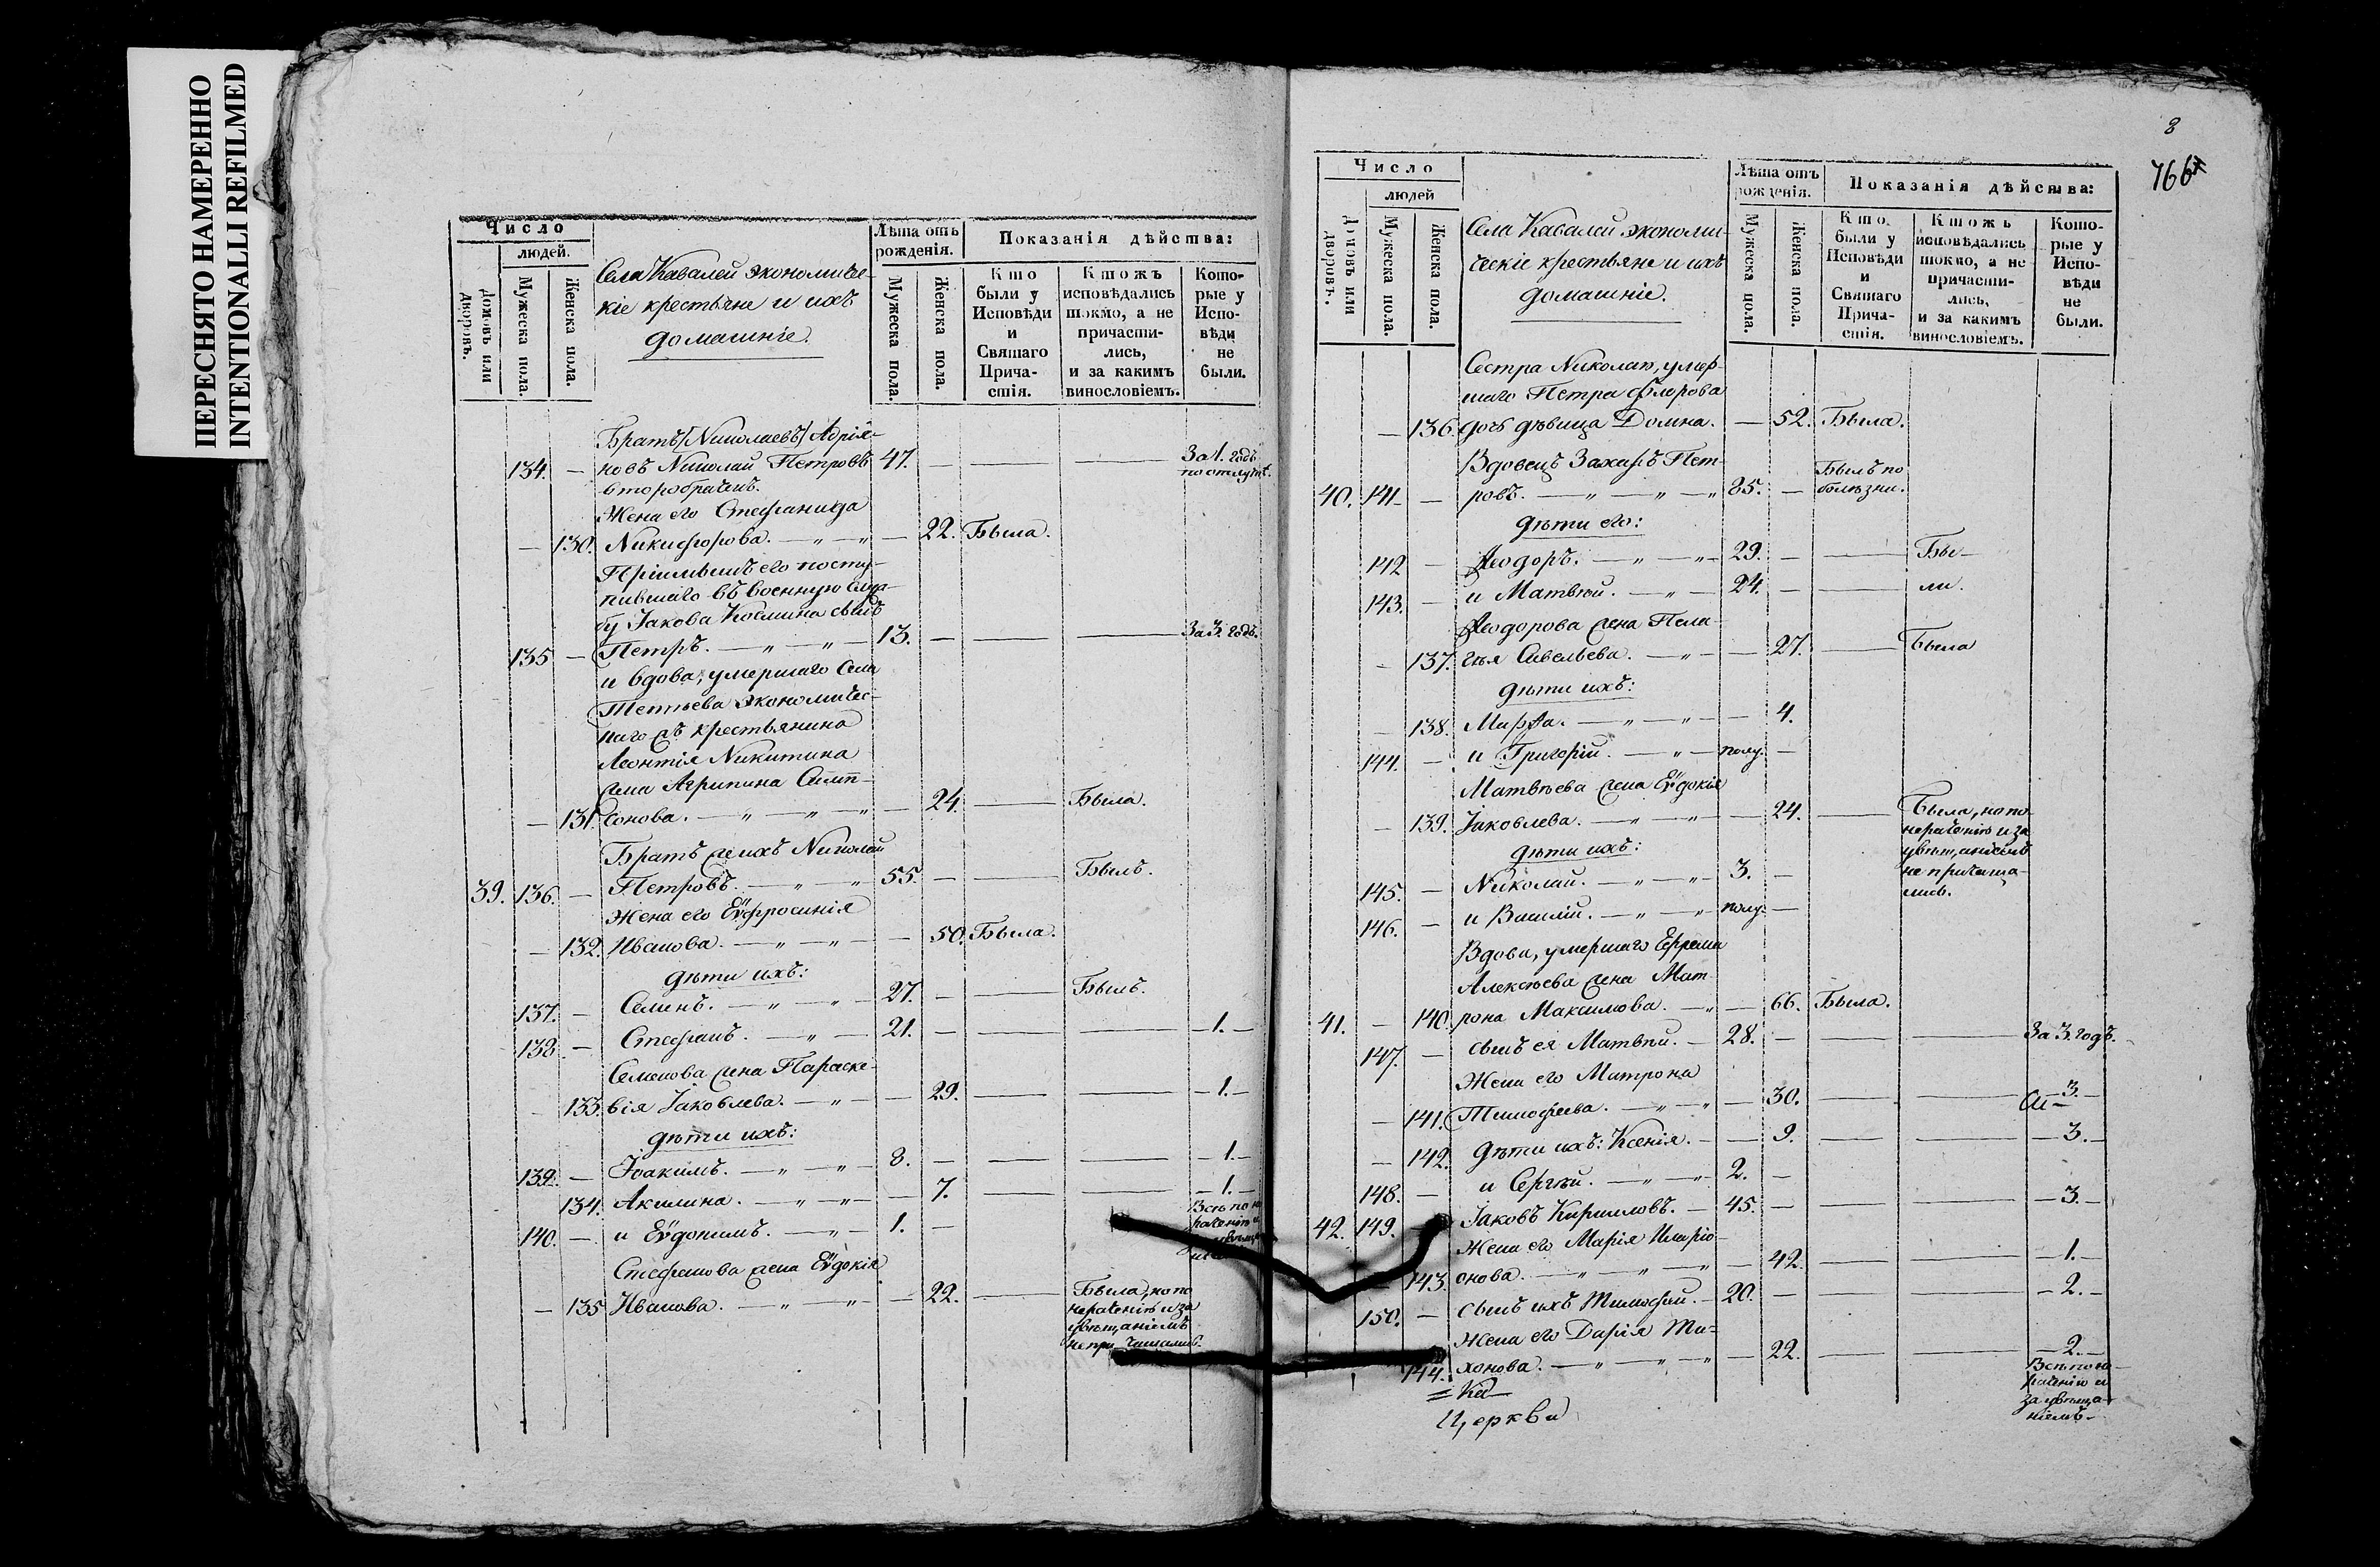 ПЕРЕСНЯТО НАМЕРЕННО
INTENTIONALLI REFILMED
Число
людей.
Домовъ или дворовъ.
Мужеска пола.
Женска пола.
Села Кавалей экономичес-
кіе крестьяне и ихъ
домашніе.
Лѣта отъ рожденія.
Мужеска пола.
Женска пола.
Показанія дѣйства:
Кто были у Исповѣди и Святаго Прича-стія.
Ктожъ исповѣдались токмо, а не причасти-лись, и за какимъ винословіемъ.
Кото-рые у Испо-вѣди не были.
Братъ [Николаевъ] Адрія-
134. — новъ Николай Петровъ 47. — — — За 1. годъ
второбрачный. по отлучкѣ.
Жена его Стефанида
— 130. Никифорова. — 22. Была.
Пріимышъ его посту-
пившаго въ военную служ-
бу Іакова Космина сынъ
135 — Петръ. — 13. — — — За 3. годъ.
и вдова, умершаго села
Тетьева экономичес-
каго крестьянина
Леонтія Никитина
жена Агрипина Самп-
— 131. сонова. — 24. — Была.
Братъ же ихъ Николай
39. 136. — Петровъ. — 55. — — Былъ.
Жена его Еѵфросинія
— 132. Иванова. — 50. Была.
дѣти ихъ:
137. — Семенъ. — 27. — — Былъ.
138 — Стефанъ. — 21. — — — 1. —
Семенова жена Параске-
133. вія Іаковлева. — 29. — — 1. —
дѣти ихъ:
139. — Іоакимъ. — 8. — — — 1. —
134. Акилина. — 7. — — 1. —
140. — и Еѵдокимъ. — 1. —
Всѣ по не
раченію и
Стефанова жена Еѵдокія
— 135 Иванова. — 22. — Была, но по
нераченію и за
увѣщаніемъ
не причащались.
8
766
Число
людей
Домовъ или дворовъ.
Мужеска пола.
Женска пола.
Села Кавалей экономи-
ческіе крестьяне и ихъ
домашніе.
Лѣта отъ рожденія.
Мужеска пола.
Женска пола.
Показанія дѣйства:
Кто были у Исповѣди и Святаго Прича-стія.
Ктожъ исповѣдались токмо, а не причасти-лись, и за какимъ винословіемъ.
Кото-рые у Испо-вѣди не были.
Сестра Николая, умер-
шаго Петра Флорова
— 136. дочь дѣвица Домна. — 52. Была.
Вдовецъ Захаръ Пет-
40. 141 — ровъ. — 85. — Былъ по болѣзни.
дѣти его:
142 — Ѳеодоръ. — 29. — — Бы-
143. — и Матвѣй. — 24. — — ли.
Ѳеодорова жена Пела-
— 137. гѣя Савельева. — 27. — Была
дѣти ихъ:
— 138. Марѳа. — 4.
144. — и Григорій. — полу. —
Матвѣева жена Еѵдокія
— 139. Іаковлева. — 24. — Была, но по
нераченію и за
увѣщаніемъ
не причаща-
лись.
дѣти ихъ:
145. — Николай. — 3. —
146. — и Василій. — полу. —
Вдова, умершаго Ефрема
Алексѣева жена Мат-
41. — 140. рона Максимова. — 66. Была.
147. — сынъ ея Матвѣй. — 28. — — — За 3. годъ.
Жена его Матрона
— 141. Тимофеева. — 30. — — 3. —
— 142. дѣти ихъ: Ксенія. — 9. — — 3. —
148. — и Сергѣй. — 2. —
42. 149. Іаковъ Кирилловъ. — 45. — — — 3. —
Жена его Марія Иларіо-
143. онова. — 42. — — 1. —
150. — сынъ ихъ Тимофей. — 20. — — — 2. —
Жена его Дарія Ти-
144. хонова. — 22. — — 2. —
Всѣ по не-
раченію и
за увѣща-
ніемъ
Церкви